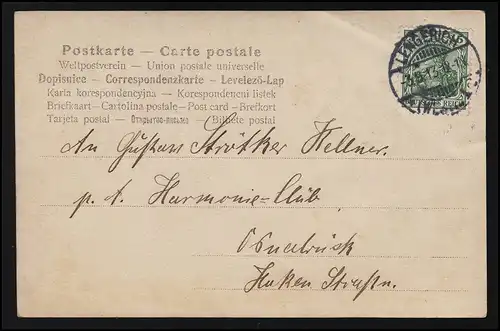 Postkarte — Carte postale
Weltpostverein — Union postale universelle
Dopisnice — Correspondenzkarte — Levelező-Lap
Karta korespondencyjna — Korespondencni listek
Briefkaart — Cartolina postale — Post card — Brefkort
Tarjeta postal — Открытое письмо — Bilhete postal
LENGERICH
REICH
An Gustav Strötker Kellner.
p. A. Harmonie-Club
Osnabrück
Haken Straße.